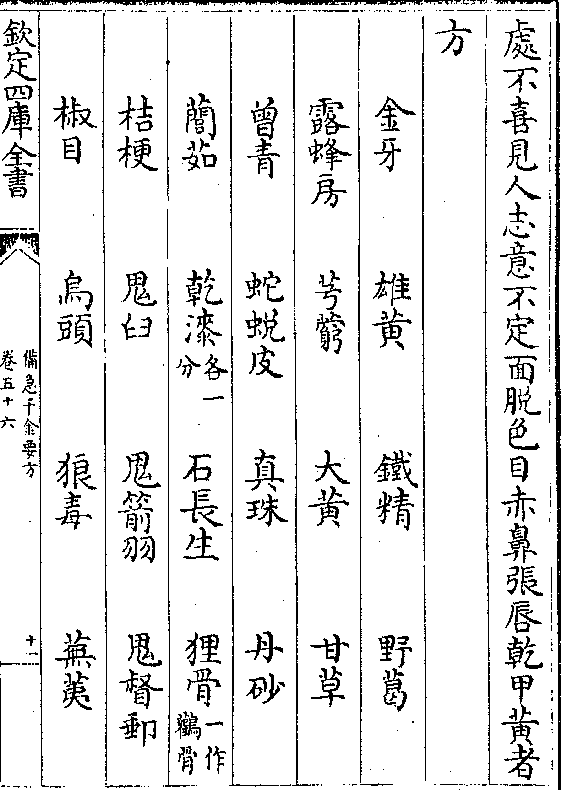 處不喜見人志意不定面脱色目赤鼻張唇乾甲黃者
方
金牙 雄黃 鐵精 野葛
露蜂房 芎藭 大黃 甘草
曾青 蛇蛻皮 真珠 丹砂
䕡茹 乾漆各一分 石長生 狸骨一作鸛骨
桔梗 鬼臼 鬼箭羽 鬼督郵
椒目 烏頭 狼毒 蕪荑
欽定四庫全書 備急千金要方 卷五十六 十一